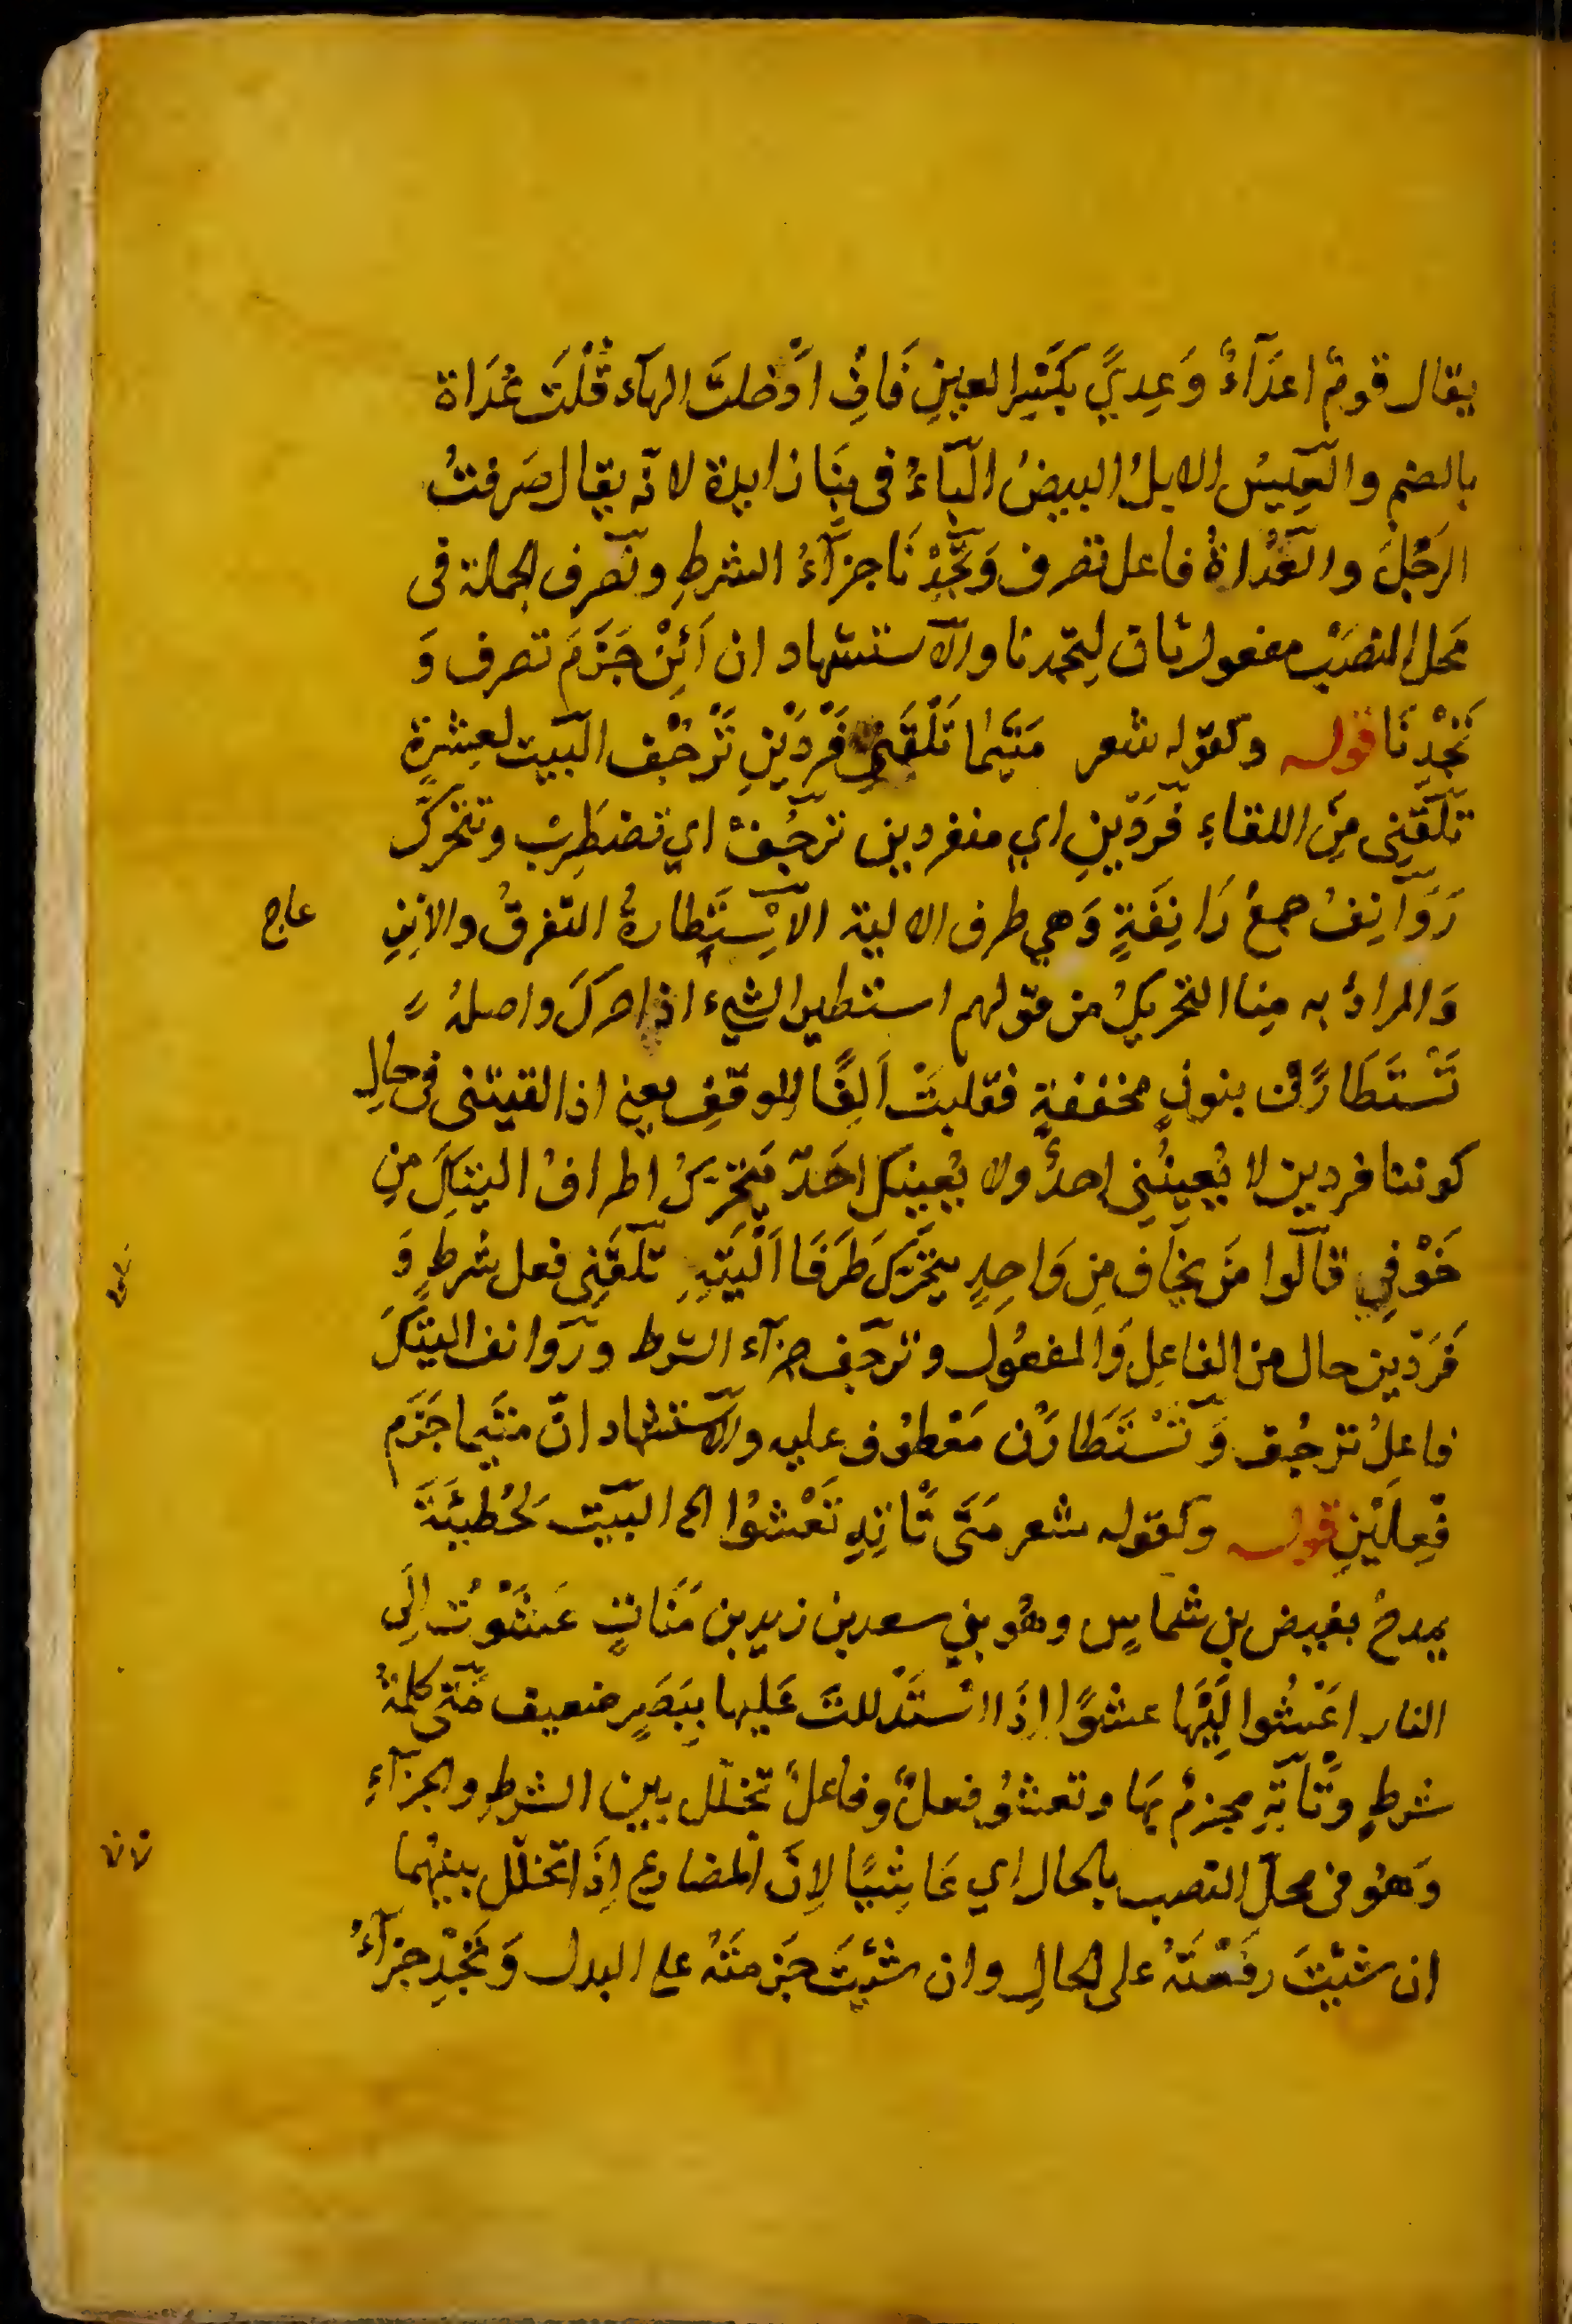 يقال قومٌ اعدَآءٌ وَعِديً بكَسَرِ العينِ فَانِ اَدْخلتَ الهآء قُلْتَ عُدَاة
بالضم والعِيسُ الابلُ البيضُ البَاءُ فى بِنَا زايدة لانّه يقال صَرفتُ
الرَجُلَ والعُدْاةُ فاعل تصرف وَتَجِدْنَا جزآءُ الشرطِ وتصرف الجملة فى
مَحل النصَبْ مفعول ثان لِتجدنا والاستشهاد ان اَيْنَ جَزَمَ تصرف وَ
تَجْدِنَا قوله وكقوله شعر مَتَيما تَلْقَنِى فَرْدَيْنِ تَرْجُف البيت لعِنترةٍ
تلقَنِى مِنَ اللقاءِ فَرَدَينِ اي منفردين ترجُفْ اي تضطَرِبْ وتتحَركُ
رَوَآنِفُ جمعُ رَانِفَةٍ وَهي طرف الالية الاِسْتِطارةُ التفرقُ والاَنِنِ
عاج
وَالمرادُ به هِنا التحريكُ من قولهم استطير الشيء اذا حركَ واصلهُ
تَسْتَطَارَنْ بنونٍ مخففةٍ فقلبتْ اَلِفًا للوقفِ يعنِ اذا لقيتنى فى حالِ
كوننا فردين لا يُعِينُنِى احدٌ ولا يُعِينكَ احَدٌ يَتحركُ اطرافُ اليتيكَ مِنِ
خَوْفِي قالوا مَن يخاف مِن وَاحِدٍ يتحركَ طَرَفَا اَلْيَتَيهِ تلقَنِى فعل شرطٍ وَ
فَرَدَين حال من الفاعِلِ وَالمفعُولِ وترجَف جزآء الشرط وروانف اليتيكَ
فاعلُ ترجُف وَتَسْتَطَارَنْ مَعْطوُف عليه والاستشهاد انّ متَيما جَزَم
فِعلَيْنِ قوله وكقوله شعر مَتَى تَاتِهِ تَعْشُوا الى البيت لحُطيئَةَ
يمدحُ بغيض بن شماسٍ وهُو بنِي سعد بن زيد بن مَنَاتٍ عَشَوْتُ اِلَى
النار اعَشُوا اِلَيْهَا عشوًا اذَا اسْتَدْللتَ عَليها بِبَصَرٍ ضعيف مَتى كلمةُ
شرطٍ وَتَاتِهِ مجزمٌ بهَا وتعشوُ فعلٌ وفاعلٌ تخلّل بين الشرطِ والجزآءِ
وَهوُ فى محلِّ النصب بالحال اي عَاشِيًا لاِنَّ المضارع اِذَا تخلّل بينهُما
ان شئِتَ رفَعْتَهُ على الحالِ وان شئِتَ جَزمتَهُ على البدل وَتَجِدْ جزآءُ